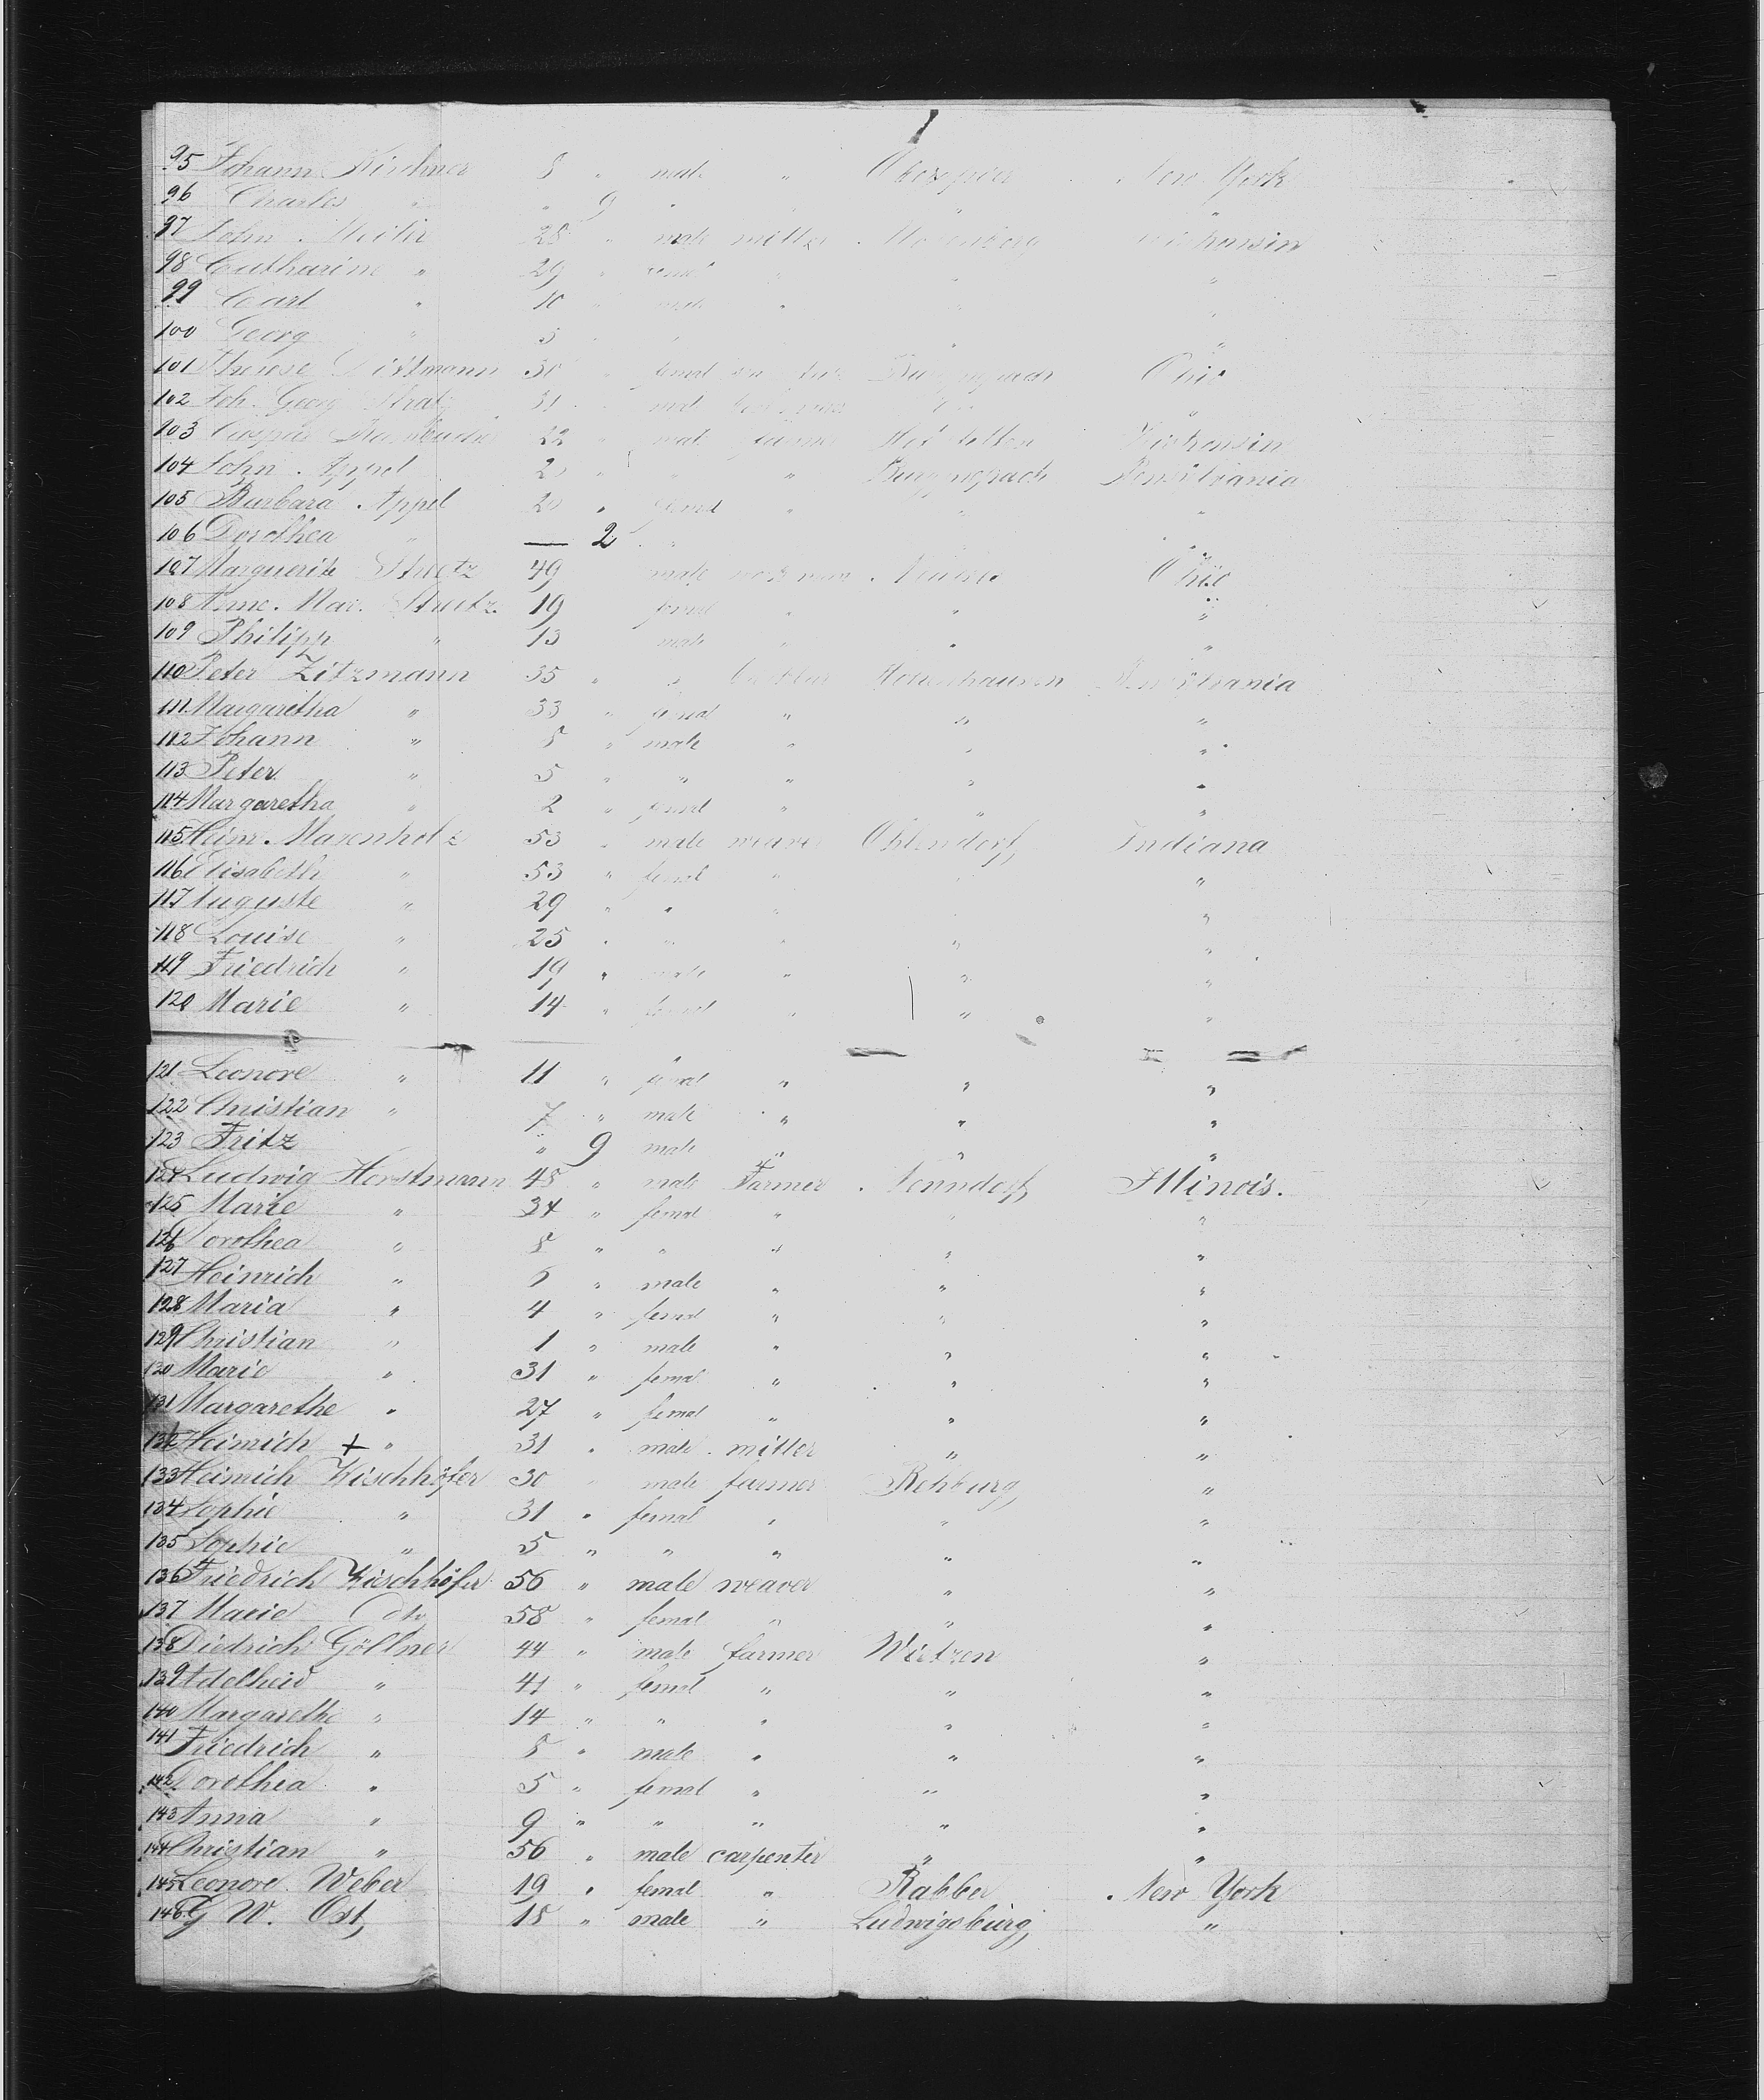 95 Johann Kirchner 8 " male " New York
96 Charles " " 9 " " " "
97 John 28 " male miller Wishonsin
98 Catharine " 29 " femal " " "
99 Carl " 10 " male " " "
100 Georg " 5 " " " " "
101 30 " femal Ohio
102 Joh. Georg 31 " male "
103 Caspar 22 " male farmer Wishonsin
104 John Appel 2 " " " Pensilvania
105 Barbara Appel 20 " femal " " "
106 Dorothea " — 2 " " "
107 Marguerite Streetz 49 male Ohio
108 Anne Mar. Streetz 19 femal " " "
109 Philipp " 13 male " " "
110 Peter Zitzmann 35 " " Pensilvania
111 Margaretha " 33 " femal " " "
112 Johann " 8 " male " " "
113 Peter " 5 " " " " "
114 Margaretha " 2 " femal " " "
115 Heinr. Marenholz 53 " male weaver Ohlendorf Indiana
116 Elisabeth " 53 " femal " " "
117 Auguste " 29 " " " " "
118 Louise " 25 " " " " "
119 Friedrich " 19 " male " " "
120 Marie " 14 " femal " " "
121 Leonore " 11 " femal " " "
122 Christian " 7 " male " " "
123 Fritz " 9 male " " "
124 Ludwig Horstmann 48 " male Farmer Nenndorf Illinois.
125 Marie " 34 " femal " " "
126 Dorothea " 8 " " " " "
127 Heinrich " 6 " male " " "
128 Maria " 4 " femal " " "
129 Christian " 1 " male " " "
130 Marie " 31 " femal " " "
131 Margarethe " 27 " femal " " "
132 Heinrich + " 31 " male miller " "
133 Heinrich Kischhöfer 30 " male farmer Rehburg "
134 Sophie " 31 " femal " " "
135 Sophie " 5 " " " " "
136 Friedrich Kischhöfer 56 " male weaver " "
137 Marie dto 58 " femal " " "
138 Diedrich Göllner 44 " male farmer Wietzen "
139 Adelheid " 41 " femal " " "
140 Margarethe " 14 " " " " "
141 Friedrich " 8 " male " " "
142 Dorothea " 5 " femal " " "
143 Anna " 9 " " " " "
144 Christian " 56 " male carpenter " "
145 Leonore Weber 19 " femal " Rabber New York
146 G W. Ost 18 " male " Ludwigsburg "